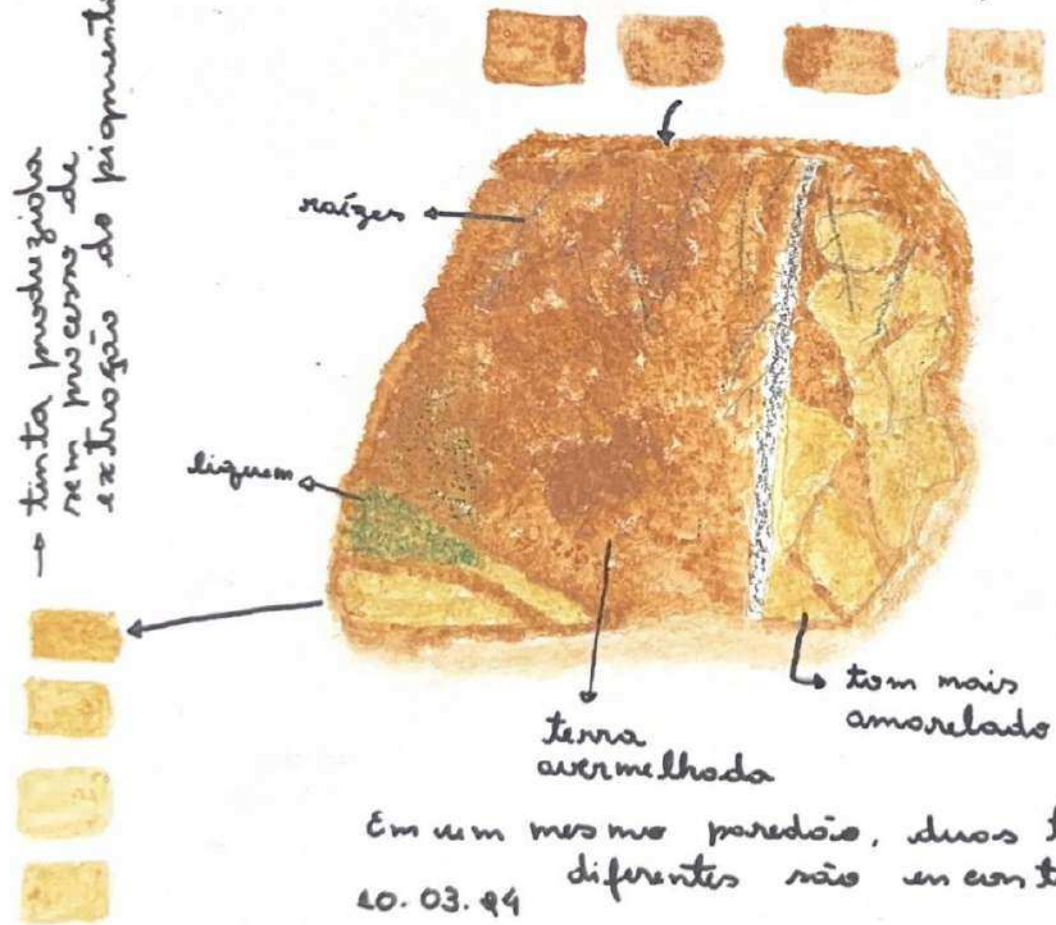 → tinta produzida
sem processo de
extração do pigmento
raízes
líquem
terra
avermelhada
tom mais
amarelado
Em um mesmo paredão, duas
diferentes são
10.03.24